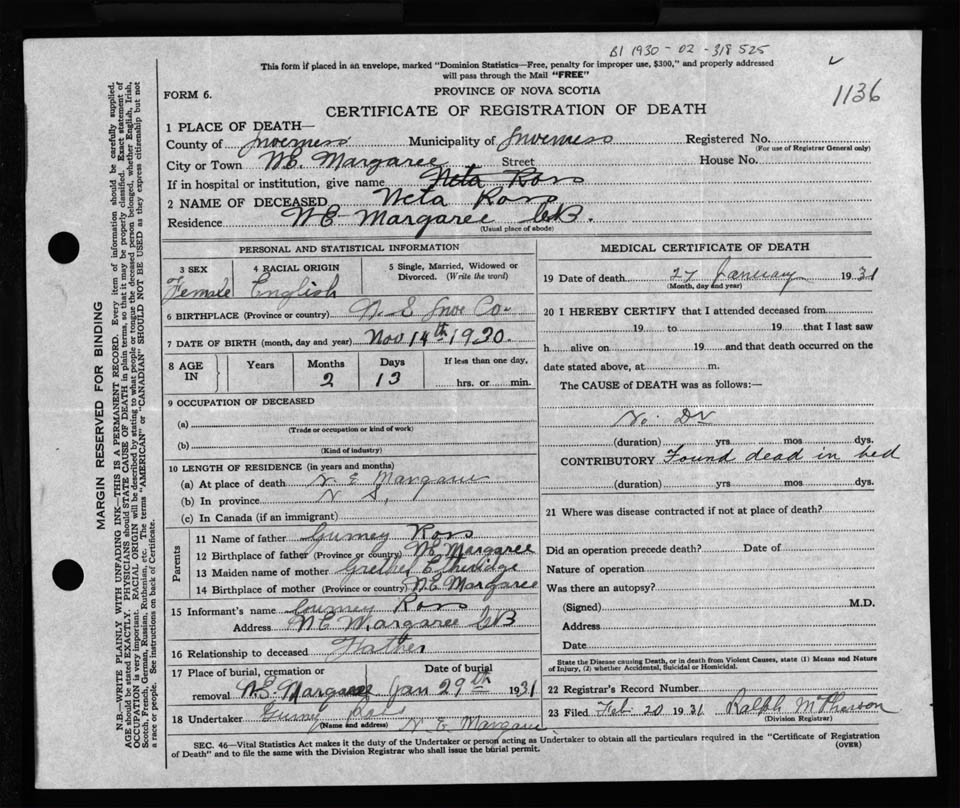 B1 1930-02-318525
This form if placed in an envelope, marked "Dominion Statistics—Free, penalty for improper use, $300," and properly addressed
will pass through the Mail "FREE"
FORM 6.
PROVINCE OF NOVA SCOTIA
1136
CERTIFICATE OF REGISTRATION OF DEATH
1 PLACE OF DEATH—
County of Inverness Municipality of Inverness Registered No.
(For use of Registrar General only)
City or Town N.E. Margaree Street House No.
If in hospital or institution, give name Neta Ross
2 NAME OF DECEASED Neta Ross
Residence N E Margaree C.B.
(Usual place of abode)
PERSONAL AND STATISTICAL INFORMATION
3 SEX 4 RACIAL ORIGIN 5 Single, Married, Widowed or
Divorced. (Write the word)
Female English
6 BIRTHPLACE (Province or country) N.E Inve Co
7 DATE OF BIRTH (month, day and year) Nov 14th 1930.
8 AGE IN Years Months Days If less than one day,
2 13 hrs. or min.
9 OCCUPATION OF DECEASED
(a)
(Trade or occupation or kind of work)
(b)
(Kind of industry)
10 LENGTH OF RESIDENCE (in years and months)
(a) At place of death N E Margaree
(b) In province N S,
(c) In Canada (if an immigrant)
Parents
11 Name of father Gurney Ross
12 Birthplace of father (Province or country) N.E Margaree
13 Maiden name of mother Etheridge
14 Birthplace of mother (Province or country) N.E Margaree
15 Informant's name Gurney Ross
Address N E Margaree C.B
16 Relationship to deceased Father
17 Place of burial, cremation or Date of burial
removal N.E. Margaree Jan 29th 1931
18 Undertaker Gurney Ross
(Name and address) N E Margaree
MEDICAL CERTIFICATE OF DEATH
19 Date of death 27 January 1931
(Month, day and year)
20 I HEREBY CERTIFY that I attended deceased from
19 to 19 that I last saw
h alive on 19 and that death occurred on the
date stated above, at m.
The CAUSE of DEATH was as follows:—
No Dr
(duration) yrs mos dys.
CONTRIBUTORY Found dead in bed
(duration) yrs. mos. dys.
21 Where was disease contracted if not at place of death?
Did an operation precede death? Date of
Nature of operation
Was there an autopsy?
(Signed) M.D.
Address
Date
State the Disease causing Death, or in death from Violent Causes, state (1) Means and Nature
of Injury, (2) whether Accidental, Suicidal or Homicidal.
22 Registrar's Record Number
23 Filed Feb 20 1931 Ralph McPherson
(Division Registrar)
SEC. 46—Vital Statistics Act makes it the duty of the Undertaker or person acting as Undertaker to obtain all the particulars required in the "Certificate of Registration
of Death" and to file the same with the Division Registrar who shall issue the burial permit.
(OVER)
MARGIN RESERVED FOR BINDING
N.B.—WRITE PLAINLY WITH UNFADING INK—THIS IS A PERMANENT RECORD. Every item of information should be carefully supplied.
AGE should be stated EXACTLY. PHYSICIANS should STATE CAUSE OF DEATH in plain terms, so that it may be properly classified. Exact statement of
OCCUPATION is very important. RACIAL ORIGIN will be described by stating to what people or tongue the deceased person belonged, whether English, Irish,
Scotch, French, German, Russian, Ruthenian, etc. The terms "AMERICAN" or "CANADIAN" SHOULD NOT BE USED as they express citizenship but not
a race or people. See instructions on back of Certificate.